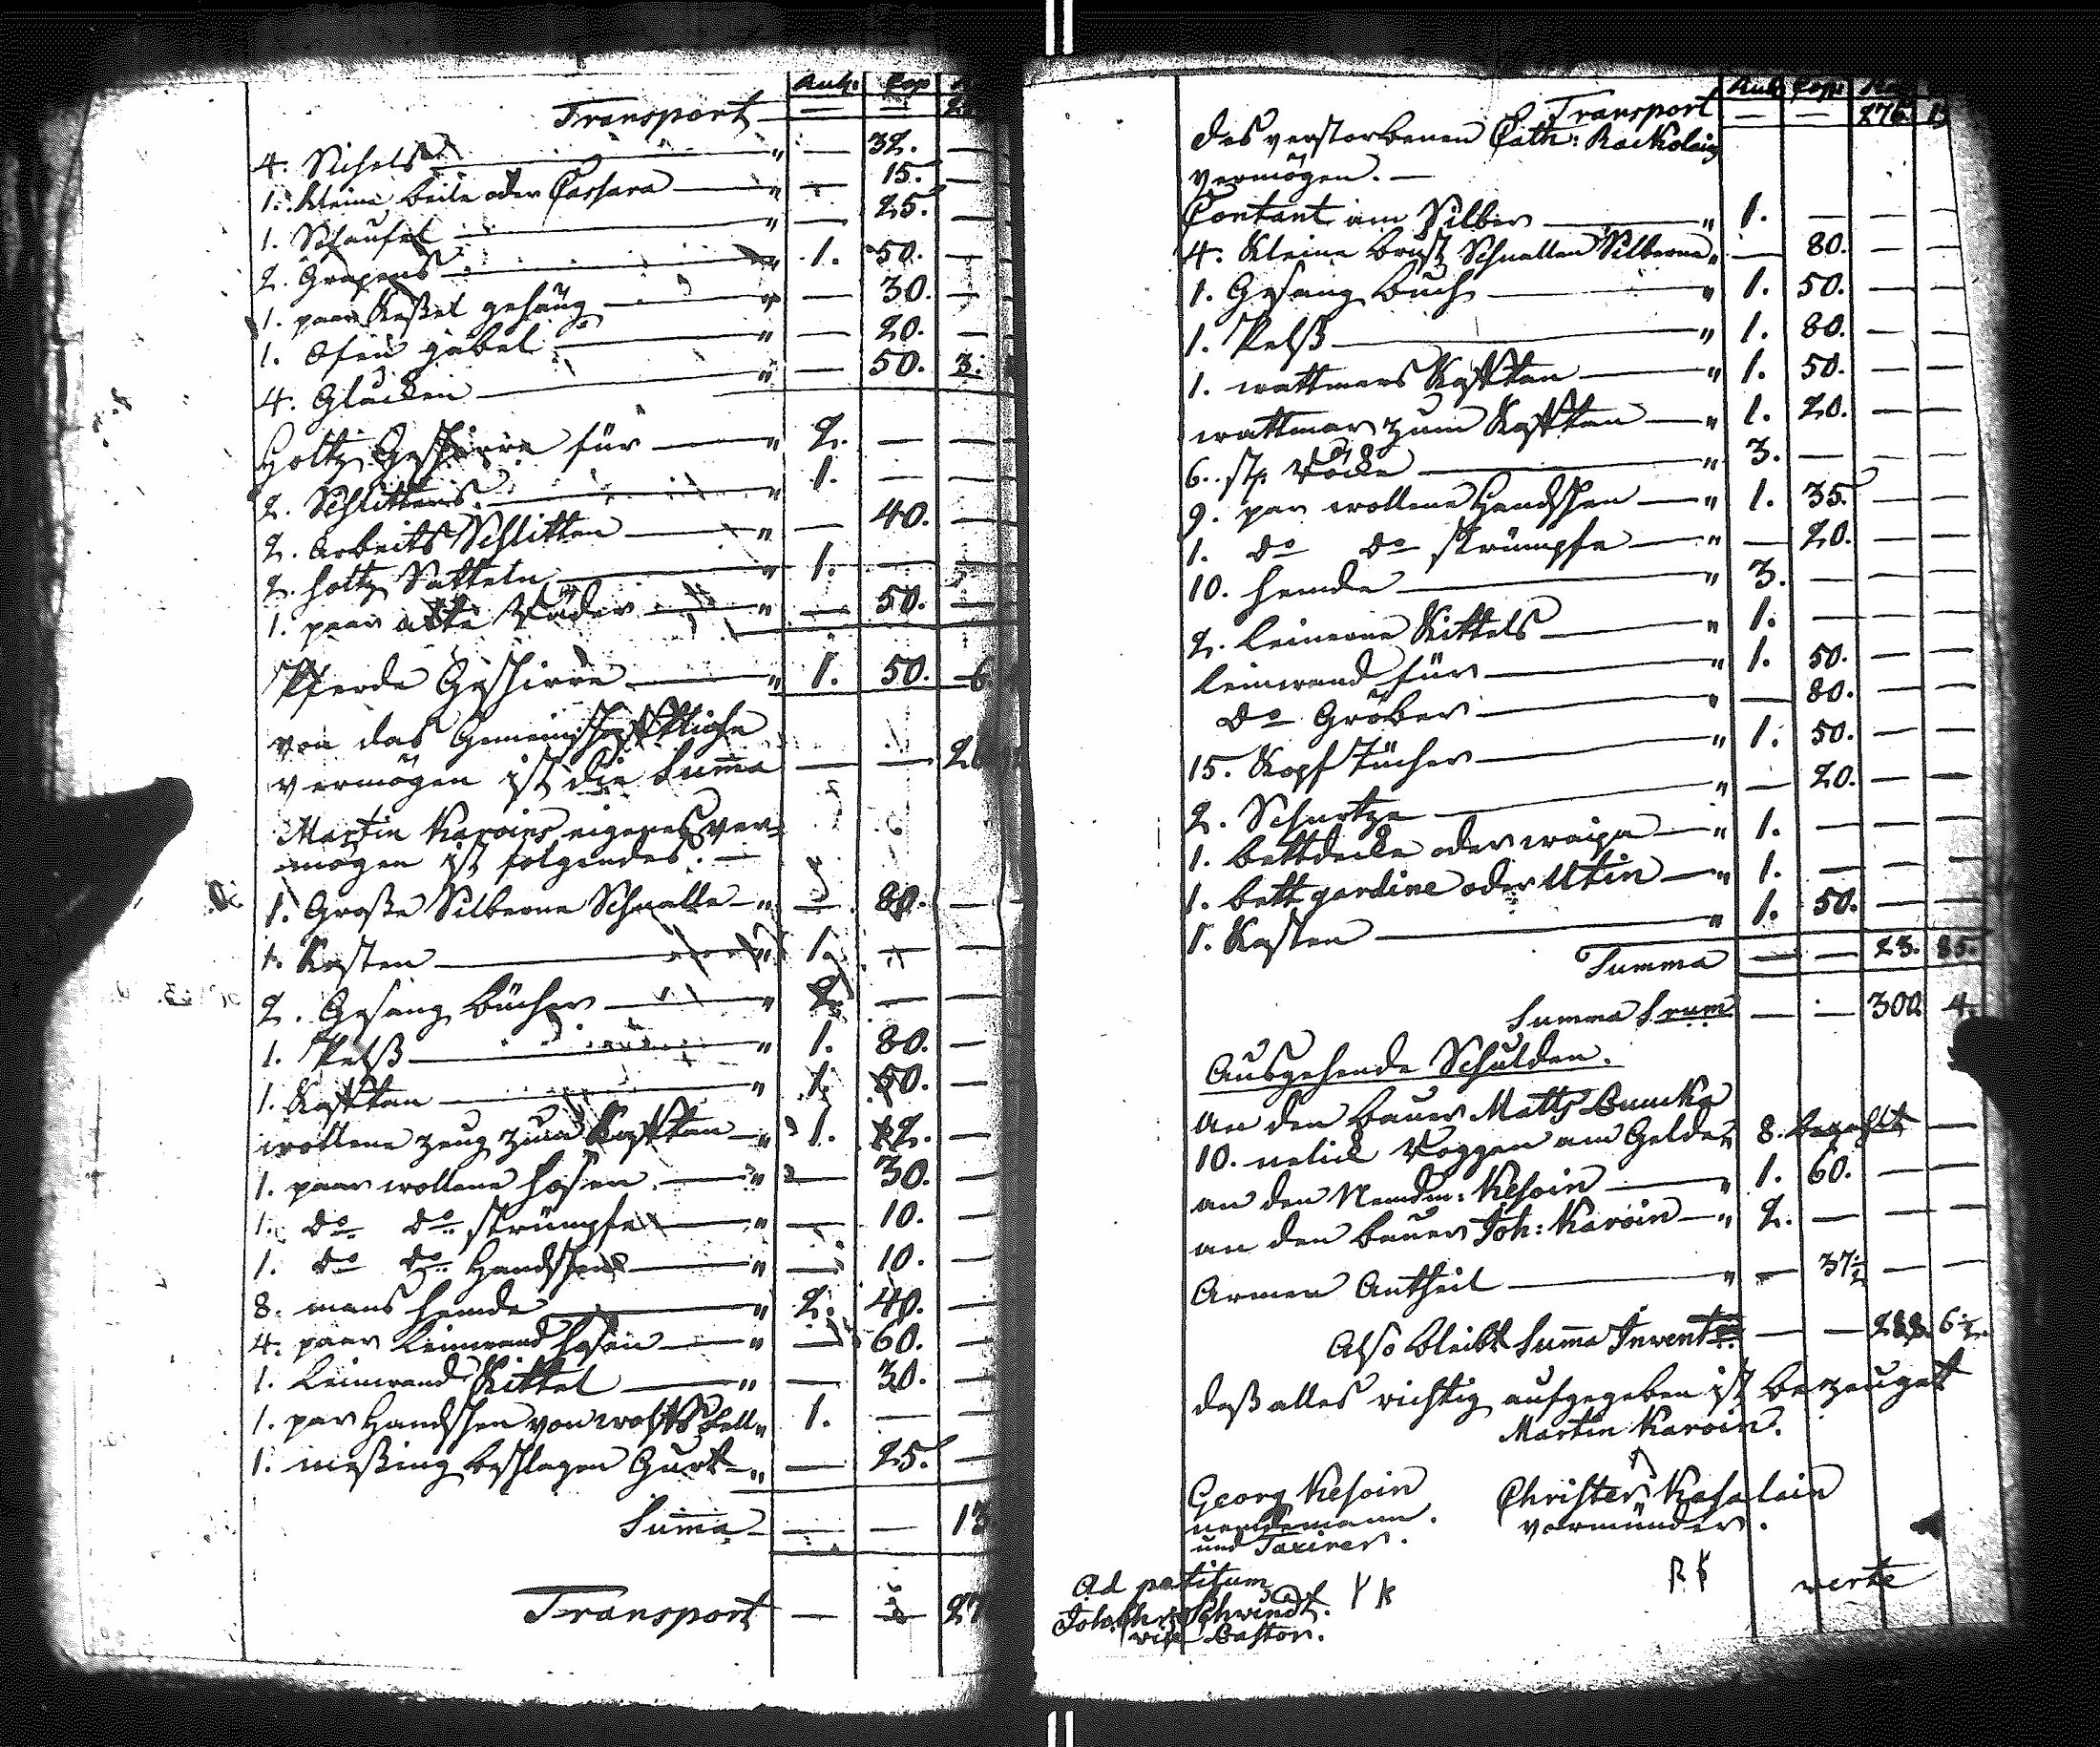 Rub: Cop R
Transport — — 2
4. Sichels " — 32. —
1. Kleine beile oder Cassara " — 15. —
1. Schaufel " — 25. —
2. Grapens " 1. 50. —
1. paar Keßel gehäng " — 30. —
1. Ofen gabel " — 20. —
4. Glucken " — 50. 3.
Holtz Geschirre für " 2. — —
2. Schlittens " 1. — —
2. Arbeits Schlitten " — 40. —
2. holtz Satteln " 1. — —
1. paar alte Räder " — 50. —
Pferde Geschirre " 1. 50. 6.
von das Gemeinschafftliche
vermögen ist die Summa — — 2
Martin Karoins eigenes ver-
mögen ist folgendes. —
1. Große Silberne Schnalle " — 80. —
1. Kasten " 1. — —
2. Gesang bücher " 2. — —
1. Pelß " 1. 80. —
1. Kafftan " 1. 50. —
wollene zeug zum Kafftan " 1. 12. —
1. paar wollene hosen " — 30. —
1. do do strümpfe " — 10. —
1. do do Handschen " — 10. —
8. mans hemde " 2. 40. —
4. paar Leinwand hosen " — 60. —
1. Leinwand Kittel " — 30. —
1. par Handschen von wolfs fell " 1. — —
1. meßing beschlagen Gurt " — 25. —
Summa — — 13
Transport — — 27
Rub Cop: Ru
Transport — — 276. 1
des verstorbenen Cath: Rackolain
vermögen. —
Contant im Silber " 1. — — —
4. Kleine brust Schnallen Silberne " — 80. — —
1. Gesang buch " 1. 50. — —
1. Pelß " 1. 80. — —
1. wattmars Kafftan " 1. 50. — —
wattmar zum Kafftan " 1. 20. — —
6. st. Röcke " 3. — — —
9. par wollene Handschen " 1. 35. — —
1. do do strümpfe " — 20. — —
10. hemde " 3. — — —
2. leinerne Kittels " 1. — — —
leinwand für " 1. 50. — —
do Gröber " — 80. — —
15. Kopf Tücher " 1. 50. — —
2. Schurtze " — 20. — —
1. bettdecke oder waipa " 1. — — —
1. bett gardine oder Utin " 1. — — —
1. Kasten " 1. 50. — —
Summa — — 23. 85.
Summa Srum — — 300. 4.
Ausgehende Schulden.
An den bauer Matts
10. Roggen am Gelde " 8. bezahlt —
an den Nemdm: Kesoin " 1. 60. — —
an den bauer Joh: Karoin " 2. — — —
Armen Antheil " — 37½ — —
Also bleibt Summa Invent — — 288. 6½.
daß alles richtig aufgegeben ist bezeuget
Martin Karoin.
Georg Kesoin Christer Kasalain
nemdemann. vormünder.
und Taxirer.
R K verte
Ad petitum Y K
Joh. Chr. Schwindt.
vice Pastor.